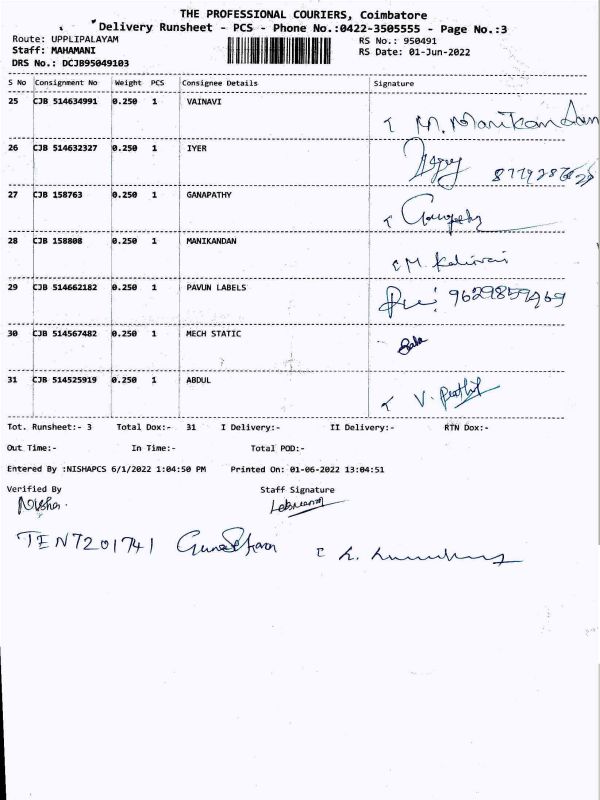 THE PROFESSIONAL COURIERS, Coimbatore
Delivery Runsheet - PCS - Phone No.:0422-3505555 - Page No.:3
Route: UPPLIPALAYAM RS No.: 950491
Staff: MAHAMANI RS Date: 01-Jun-2022
DRS No.: DCJB95049103
S No Consignment No Weight PCS Consignee Details Signature
25 CJB 514634991 0.250 1 VAINAVI M. Manikandan
26 CJB 514632327 0.250 1 IYER
27 CJB 158763 0.250 1 GANAPATHY Ganapathy
28 CJB 158808 0.250 1 MANIKANDAN M.
29 CJB 514662182 0.250 1 PAVUN LABELS 9629859469
30 CJB 514567482 0.250 1 MECH STATIC
31 CJB 514525919 0.250 1 ABDUL V.
Tot. Runsheet:- 3 Total Dox:- 31 I Delivery:- II Delivery:- RTN Dox:-
Out Time:- In Time:- Total POD:-
Entered By :NISHAPCS 6/1/2022 1:04:50 PM Printed On: 01-06-2022 13:04:51
Verified By Staff Signature
Nisha.
TEN7201741